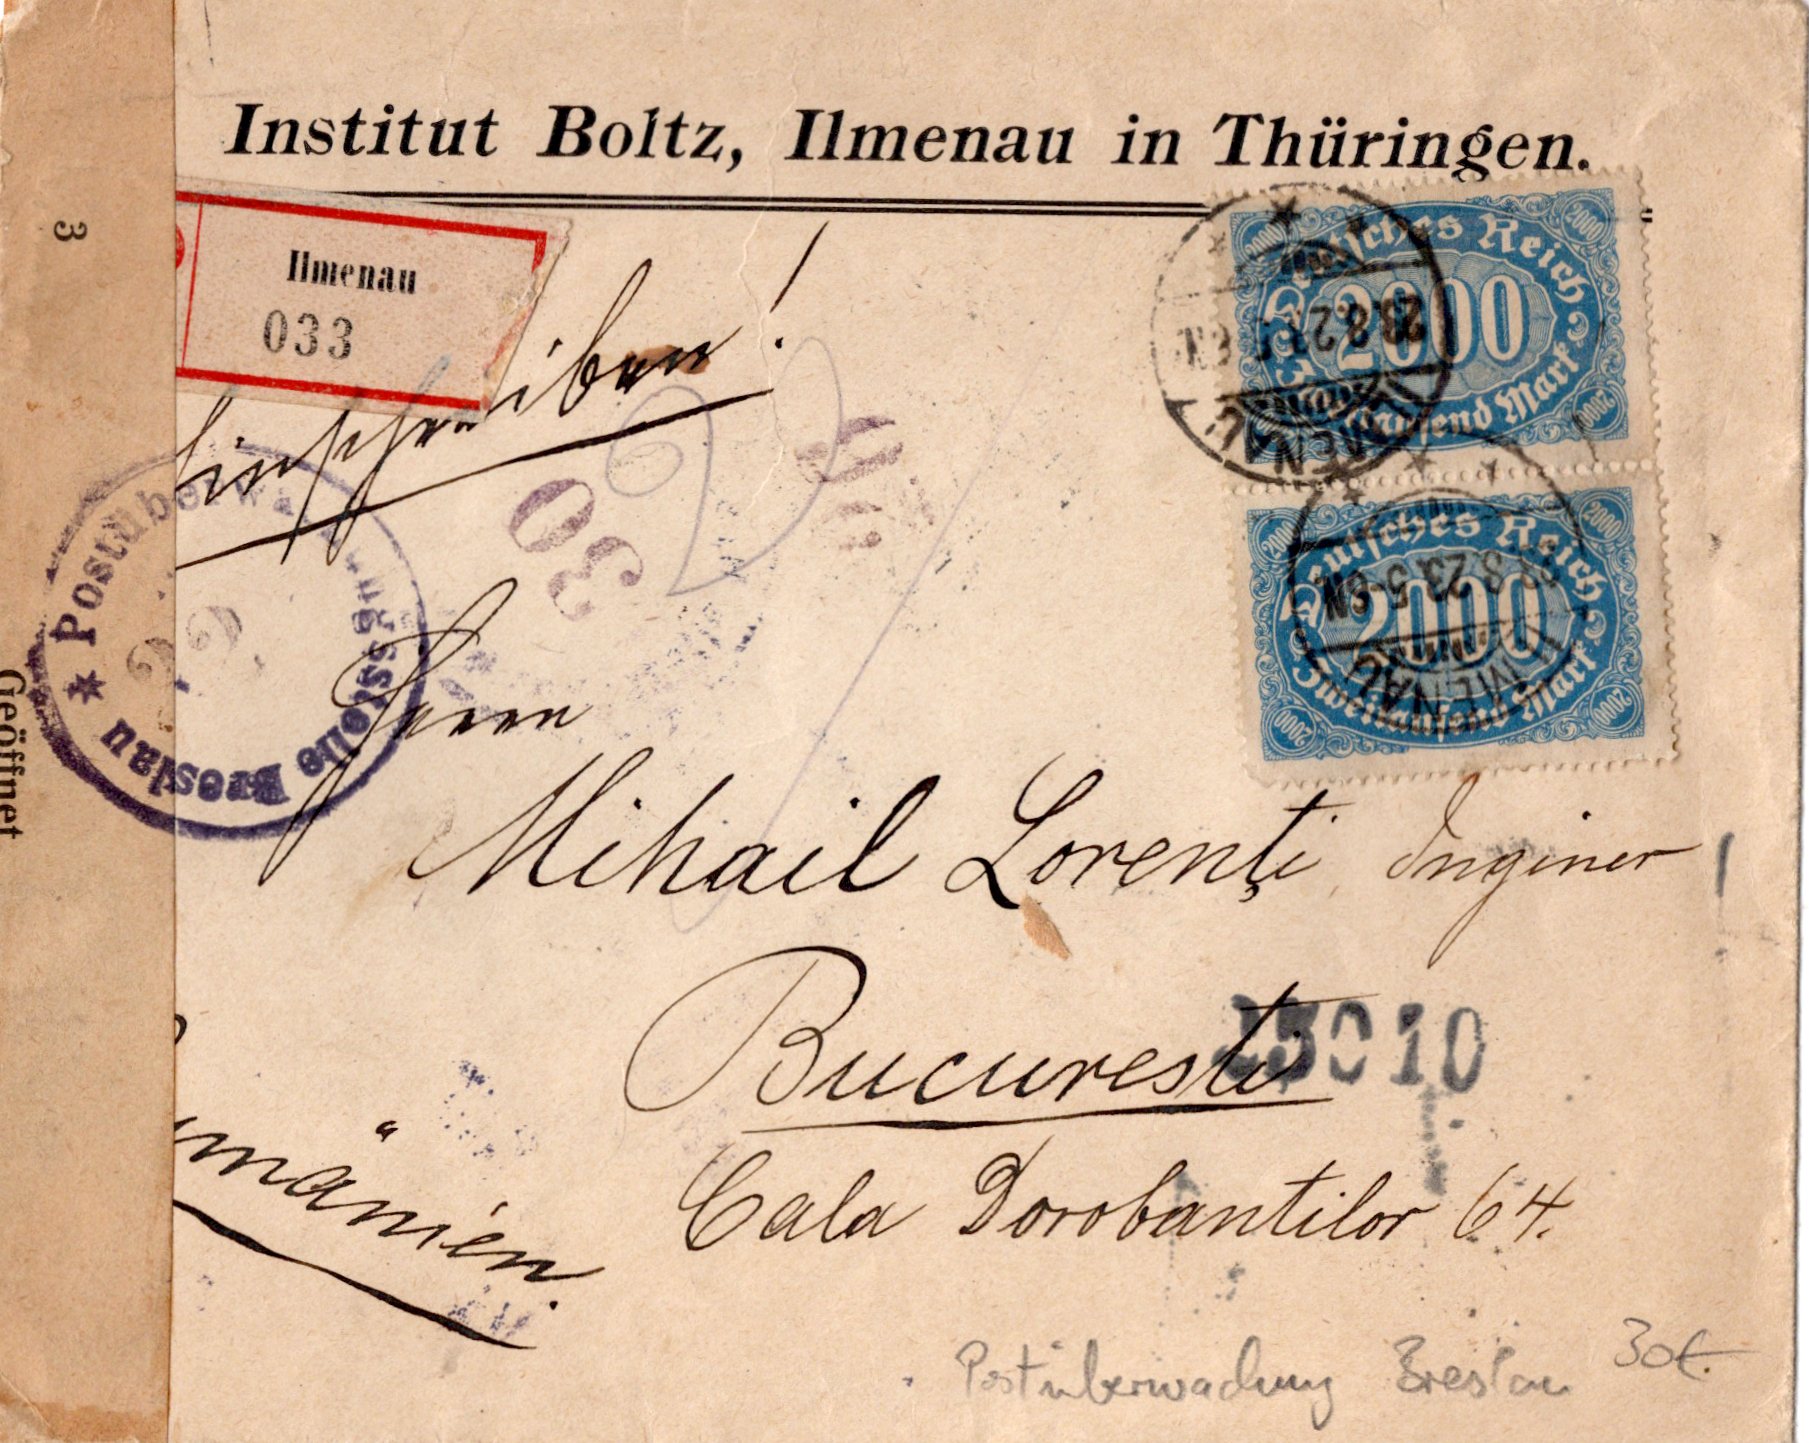 Institut Boltz, Ilmenau in Thüringen.
Ilmenau
033
Einschreiben!
Deutsches Reich
2000
Zweitausend Mark
ILMENAU
Deutsches Reich
2000
Zweitausend Mark
ILMENAU
23.5-6N
3
Geöffnet
* Postüberwachungsstelle Breslau
30
Herrn
Mihail Lorenți Inginer
București
Cala Dorobantilor 64.
Rumänien.
Postüberwachung Breslau 30€.